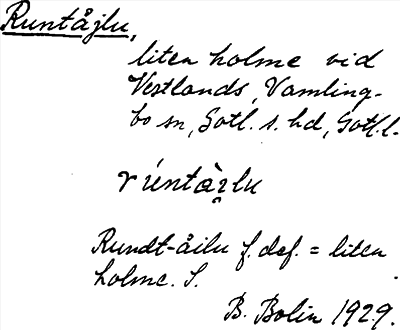 Runtåjlu,
liten holme vid
Vestlands, Vamling-
bo sn, Gotl. s. hd, Gotl. l.
rúntàɪlu
Rundt-åilu f. def. = liten
holme. S.
B. Bolin 1929.